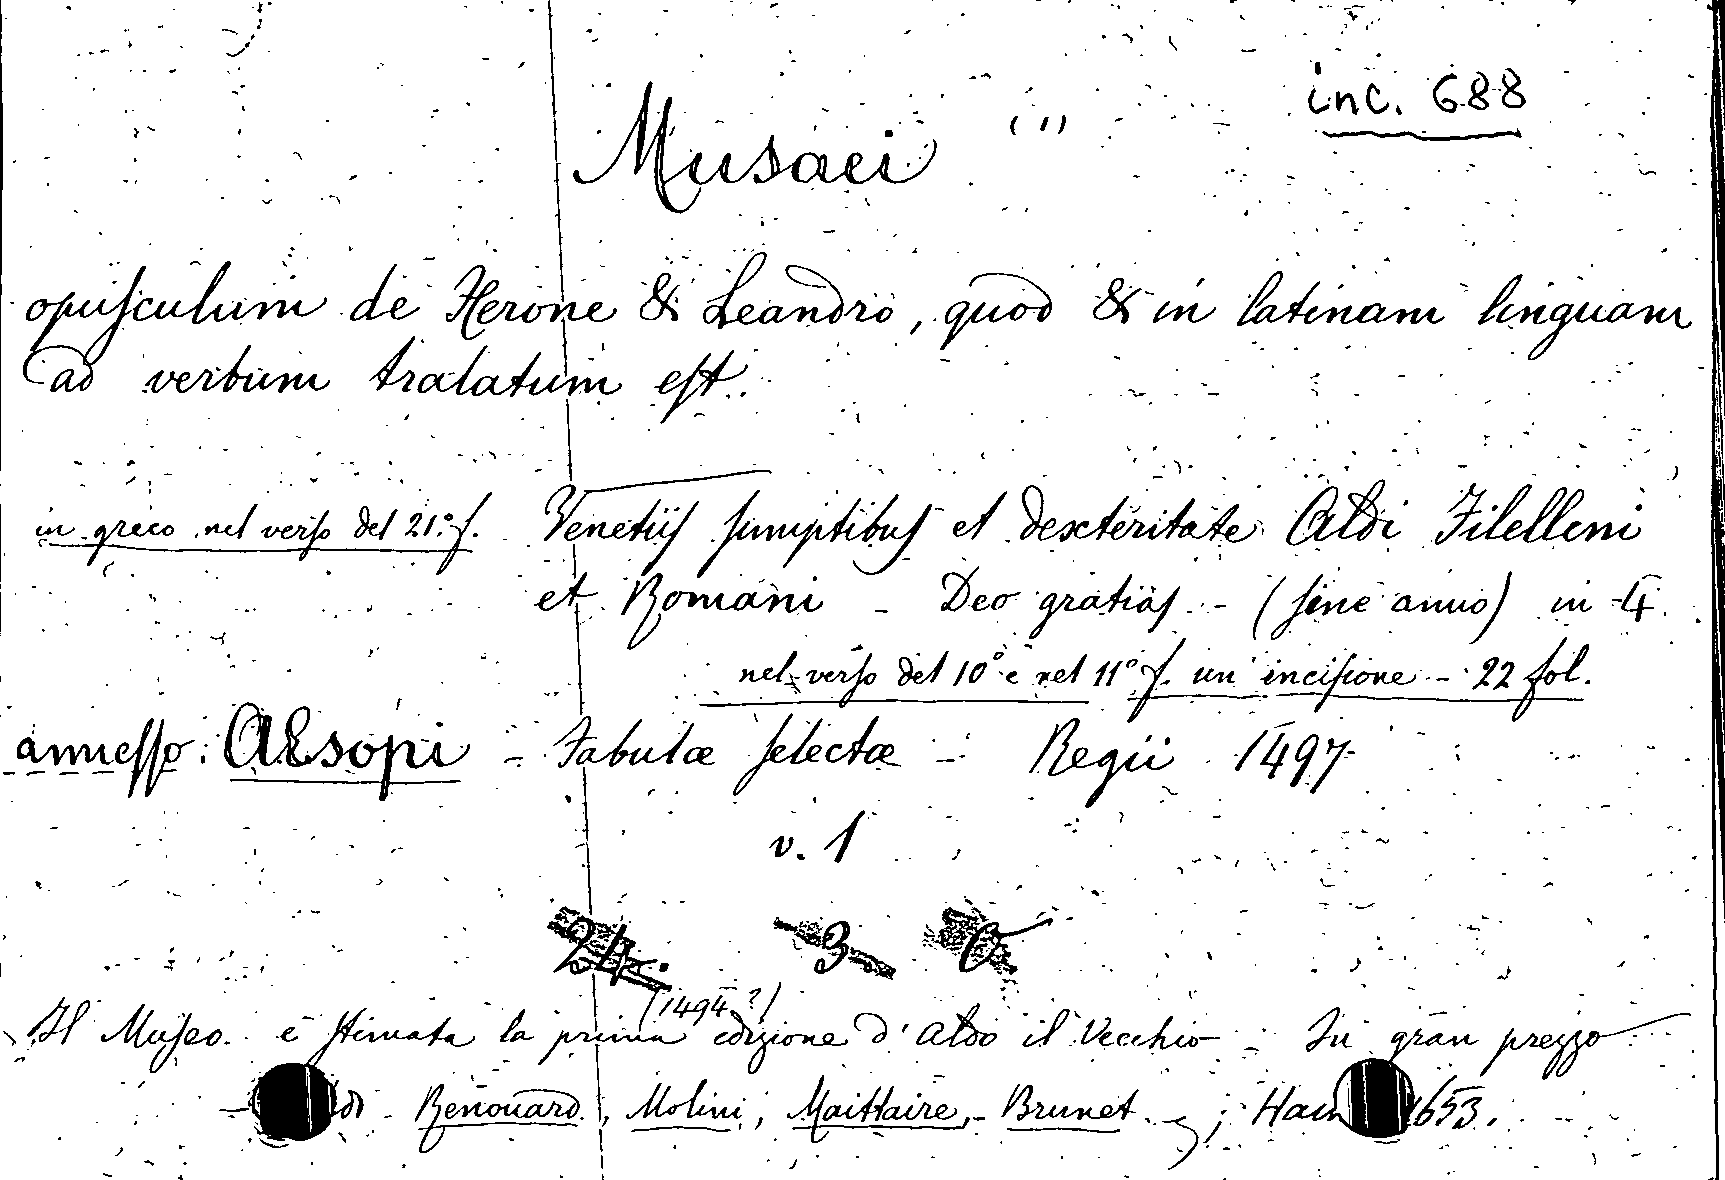 inc. 688
Musaei
opusculum de Herone & Leandro, quod & in latinam linguam
ad verbum tralatum est.
in greco nel verso del 21.º f. Venetiis sumptibus et dexteritate Aldi Filelleni
et Romani - Deo gratias - (sine anno) in 4.
nel verso del 10º e nel 11º f. un' incisione - 22 fol.
annesso: AEsopi - Fabulæ selectæ - Regii 1497
v. 1
24. 3 0
(1494?)
Il Museo è stimata la prima edizione d'Aldo il Vecchio - In gran prezzo
- Renouard, Molini, Maittaire, - Brunet - ; 1653.